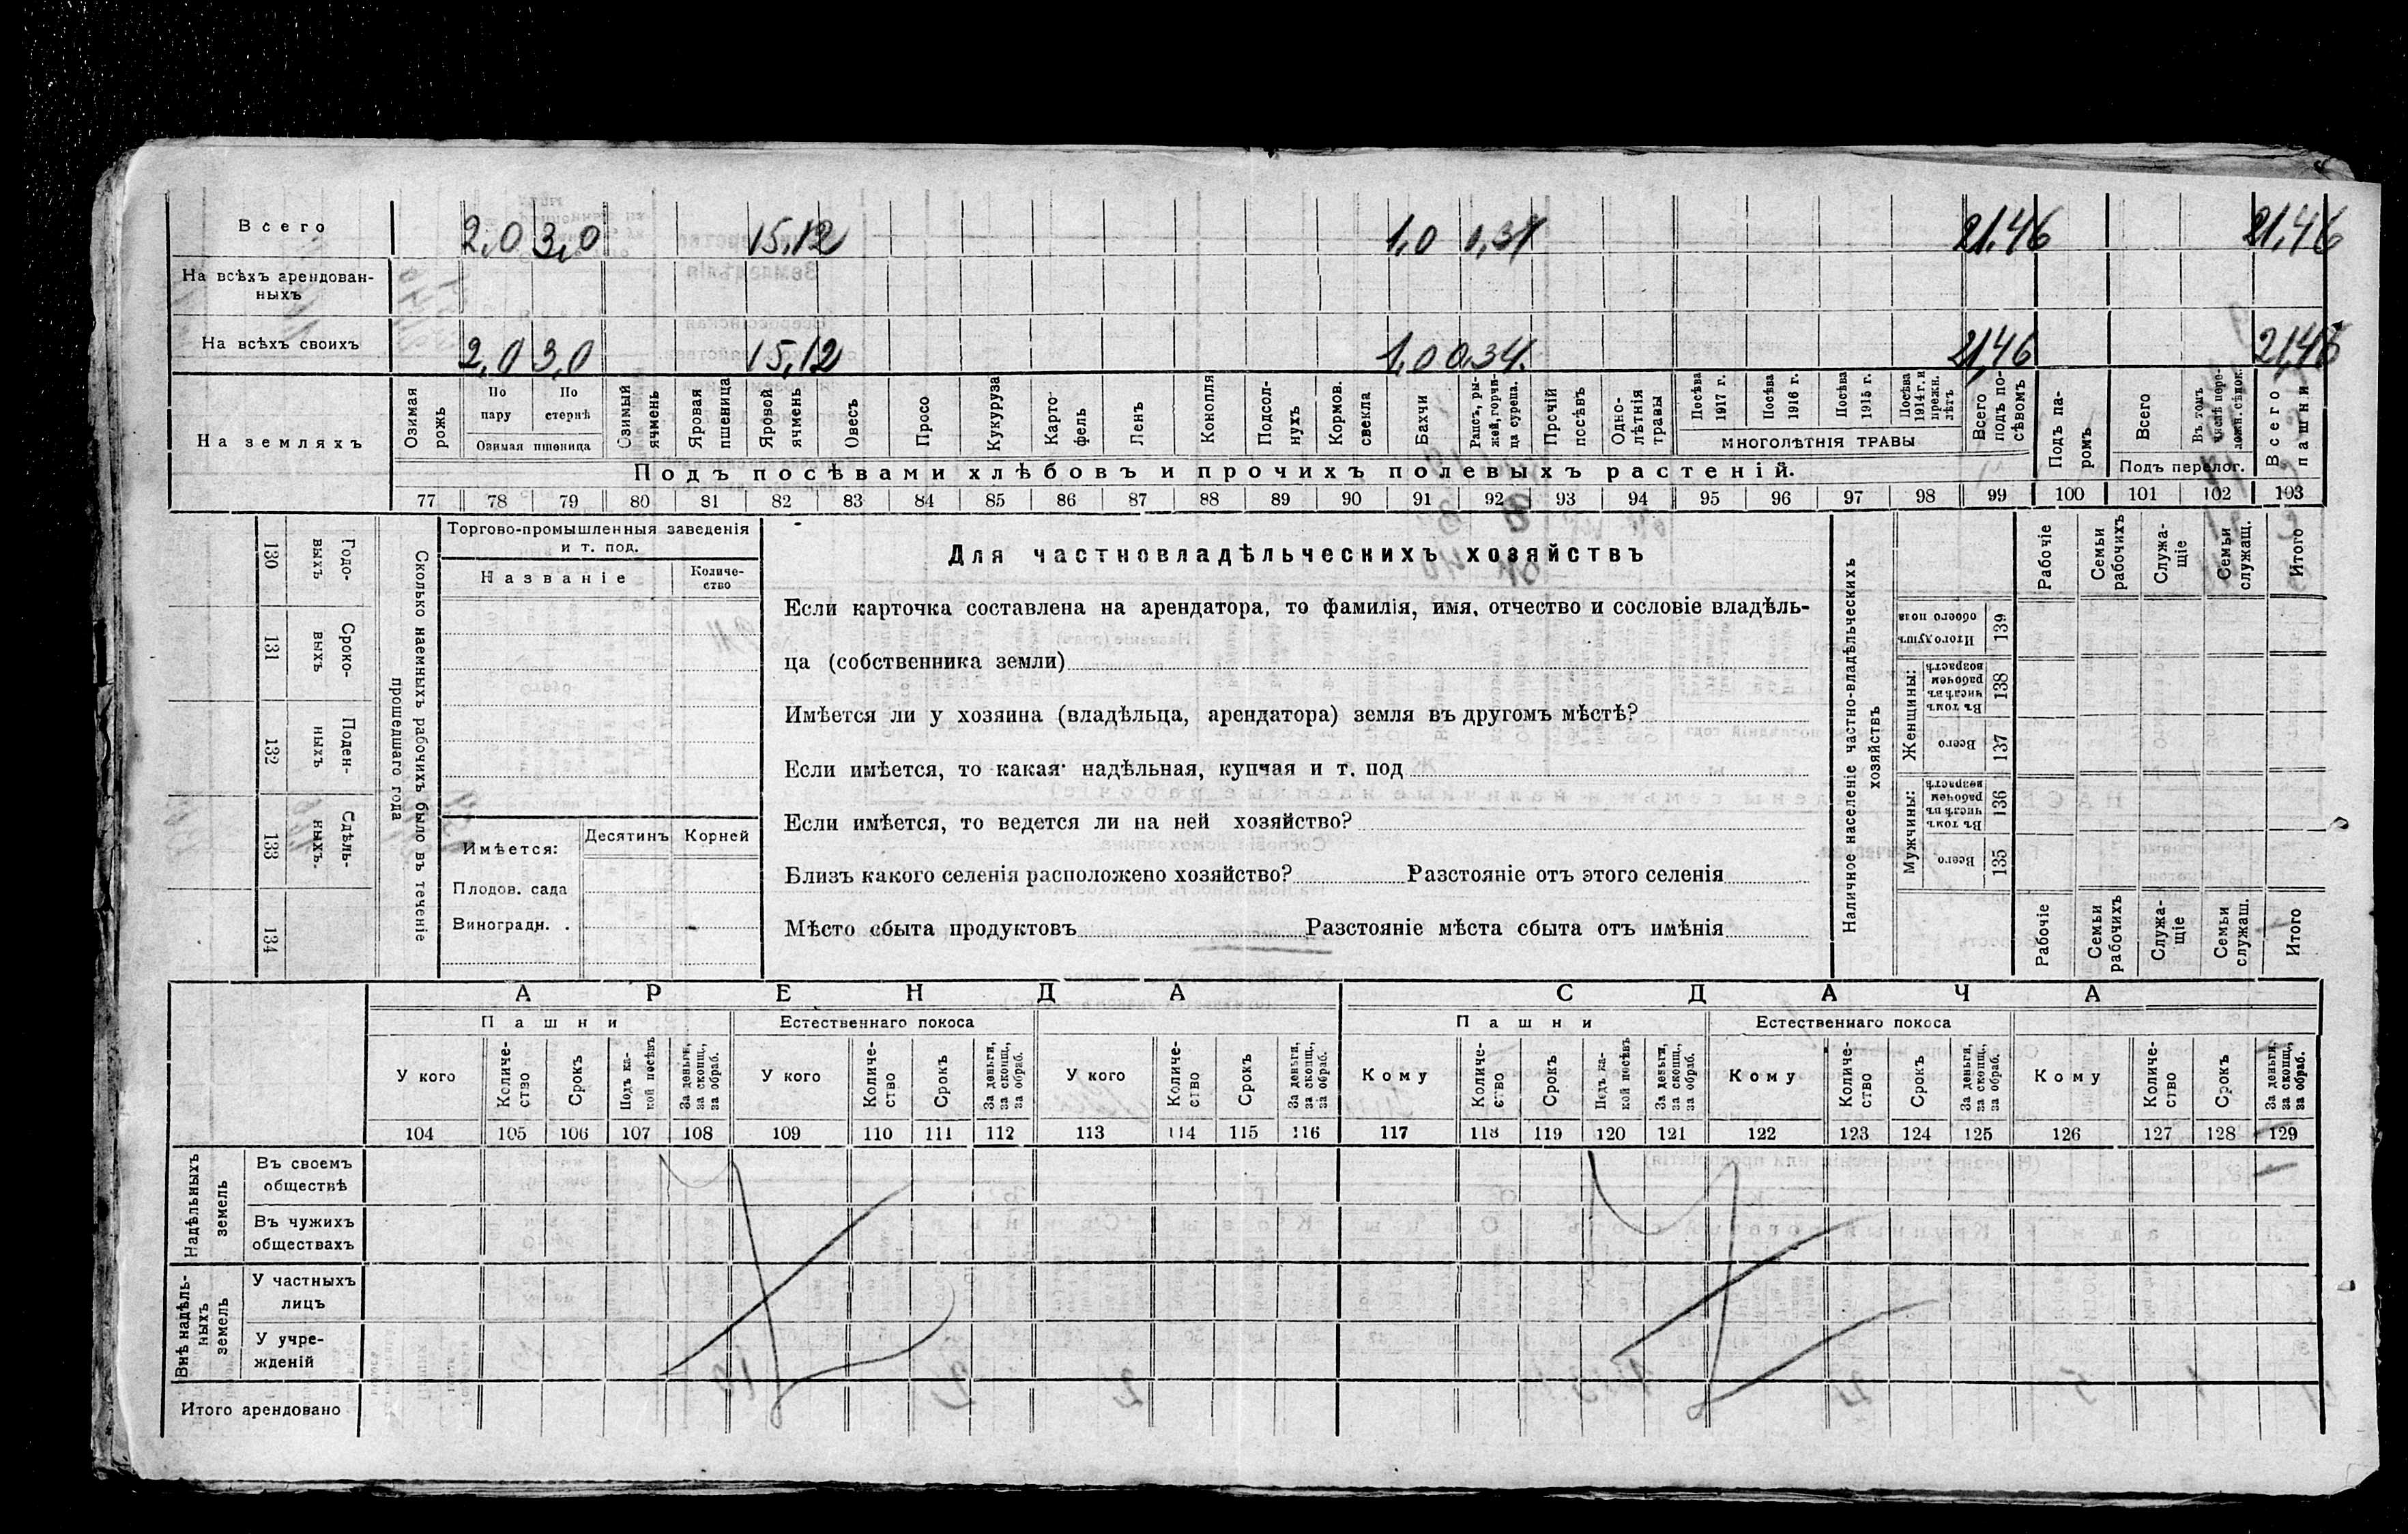 Всего 2,0 3,0 15,12 1,0 0,34 21,46 21,46
На всѣхъ арендован-
ныхъ
На всѣхъ своихъ 2,0 3,0 15,12 1,0 0,34 21,46 21,46
На земляхъ
Озимая рожь
По пару
По стернѣ
Озимая пшеница
Озимый ячмень
Яровая пшеница
Яровой ячмень
Овесъ
Просо
Кукуруза
Карто-
фель
Ленъ
Конопля
Подсол-
нухъ
Кормов. свекла
Бахчи
Рапсъ, ры-
жей, горчи-
ца сурепа.
Прочій посѣвъ
Одно-
лѣтнія травы
Посѣва 1917 г.
Посѣва 1916 г.
Посѣва 1915 г.
Посѣва 1914 г. и прежн. лѣтъ
МНОГОЛѢТНІЯ ТРАВЫ
Всего подъ по-
сѣвомъ
Подъ па-
ромъ
Всего
Въ томъ числѣ пере-
ложн. сѣнок.
Подъ перелог.
Всего пашни
Подъ посѣвами хлѣбовъ и прочихъ полевыхъ растеній.
77 78 79 80 81 82 83 84 85 86 87 88 89 90 91 92 93 94 95 96 97 98 99 100 101 102 103
130 Годо-
выхъ
131 Сроко-
выхъ
132 Поден-
ныхъ
133 Сдѣль-
ныхъ.
134
Сколько наемныхъ рабочихъ было въ теченіе
прошедшаго года
Торгово-промышленныя заведенія
и т. под.
Названіе
Количе-
ство
Имѣется:
Десятинъ Корней
Плодов. сада
Виноградн. .
Для частновладѣльческихъ хозяйствъ
Если карточка составлена на арендатора, то фамилія, имя, отчество и сословіе владѣль-
ца (собственника земли)
Имѣется ли у хозяина (владѣльца, арендатора) земля въ другомъ мѣстѣ?
Если имѣется, то какая: надѣльная, купчая и т. под
Если имѣется, то ведется ли на ней хозяйство?
Близъ какого селенія расположено хозяйство? Разстояніе отъ этого селенія
Мѣсто сбыта продуктовъ Разстояніе мѣста сбыта отъ имѣнія
Наличное населеніе частно-владѣльческихъ
хозяйствъ
Рабочіе
Семьи рабочихъ
Служа-
щіе
Семьи служащ.
Итого
Итого душъ обоего пола 139
Женщины:
Въ томъ числѣ въ рабочемъ возрастѣ 138
Всего 137
Мужчины:
Въ томъ числѣ въ рабочемъ возрастѣ 136
Всего 135
Рабочіе
Семьи рабочихъ
Служа-
щіе
Семьи служащ.
Итого
АРЕНДА СДАЧА
Пашни Естественнаго покоса Пашни Естественнаго покоса
У кого
Количе-
ство
Срокъ
Подъ ка-
кой посѣвъ
За деньги, за скопщ., за обраб.
У кого
Количе-
ство
Срокъ
За деньги, за скопщ., за обраб.
У кого
Количе-
ство
Срокъ
За деньги, за скопщ., за обраб.
Кому
Количе-
ство
Срокъ
Подъ ка-
кой посѣвъ
За деньги, за скопщ., за обраб.
Кому
Количе-
ство
Срокъ
За деньги, за скопщ., за обраб.
Кому
Количе-
ство
Срокъ
За деньги, за скопщ., за обраб.
104 105 106 107 108 109 110 111 112 113 114 115 116 117 118 119 120 121 122 123 124 125 126 127 128 129
Надѣльныхъ земель
Въ своемъ
обществѣ
Въ чужихъ
обществахъ
Внѣ надѣль-
ныхъ земель
У частныхъ
лицъ
У учре-
жденій
Итого арендовано